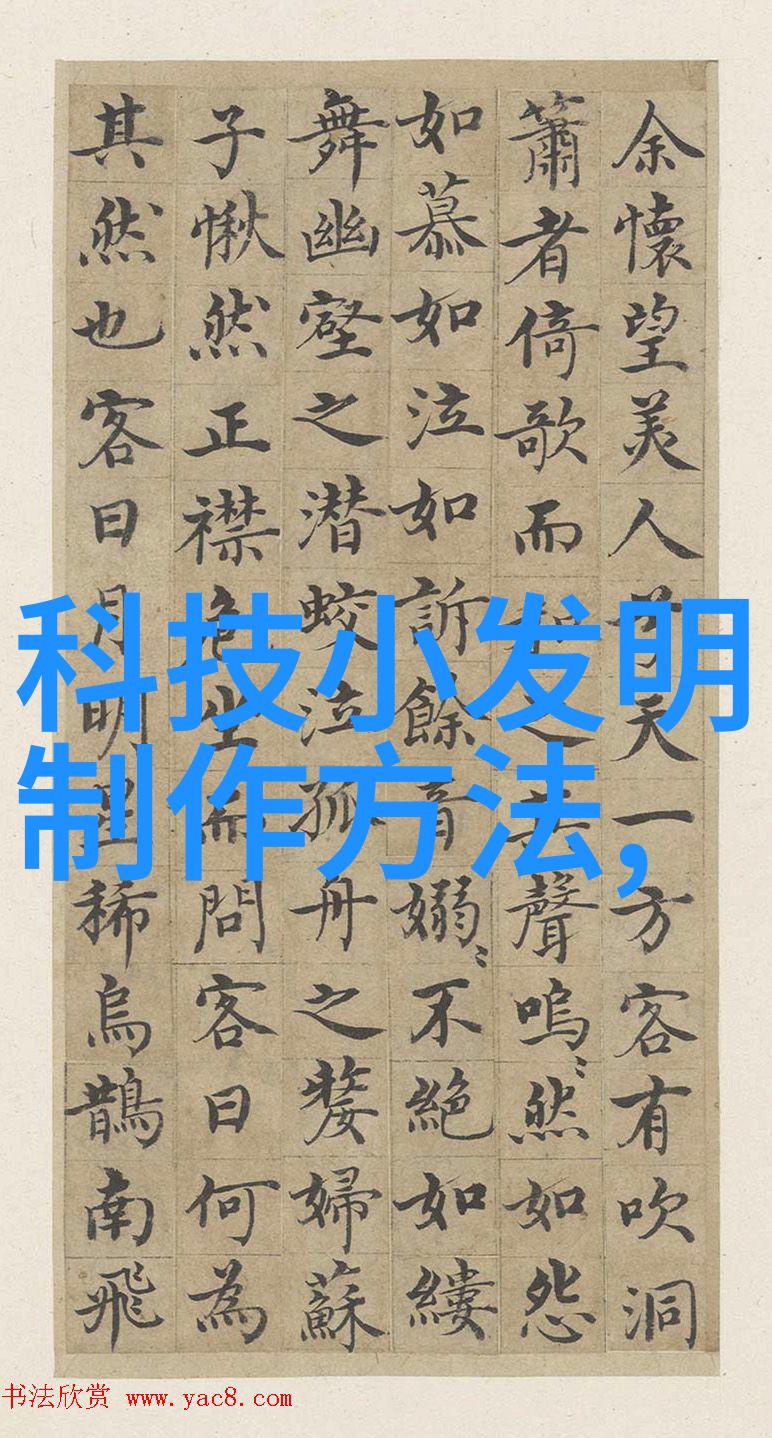 余懷望美人兮天一方客有吹洞
簫者倚歌而和之其聲嗚〻然如怨
如慕如泣如訴餘音嫋〻不絕如縷
舞幽壑之潜蛟泣孤舟之嫠婦蘇
子愀然正襟危坐而問客曰何為
其然也客曰月明星稀烏鵲南飛
科技小发明
制作方法,
书法欣赏 www.yac8.com